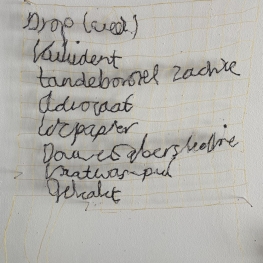 Drop (zoet)
Kukident
tandeborstel zachte
Advocaat
Wcpapier
Douwe Egberts koffie
Gehakt